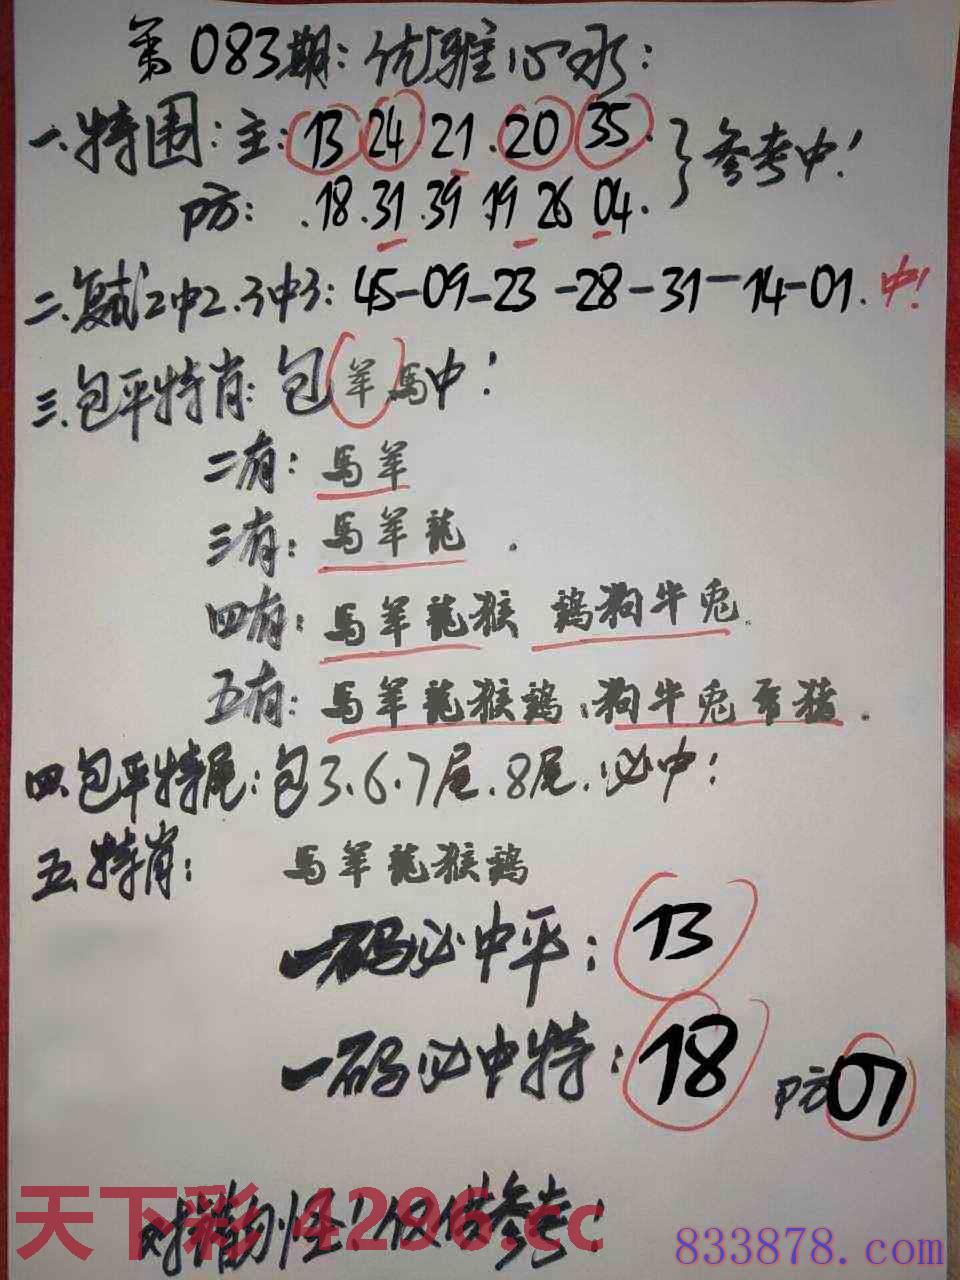 第083期:优雅心水:
一.特围:主:13 24.21.20 35.
参考中!
防:.18.31.39 19 26 04.
二.复式2中2.3中3:45-09-23-28-31-14-01.中!
三.包平特肖:包羊马中!
二有:馬羊
三有:馬羊龍.
四有:馬羊龍猴 鷄狗牛兎.
五有:馬羊龍猴鷄.狗牛兎 猪.
四.包平特尾:包3.6.7尾.8尾.必中!
五.特肖:馬羊龍猴鷄
一码必中平:13
一码必中特:18 防07
对 勿怪!仅供参考!
天下彩 4296.cc
833878.com